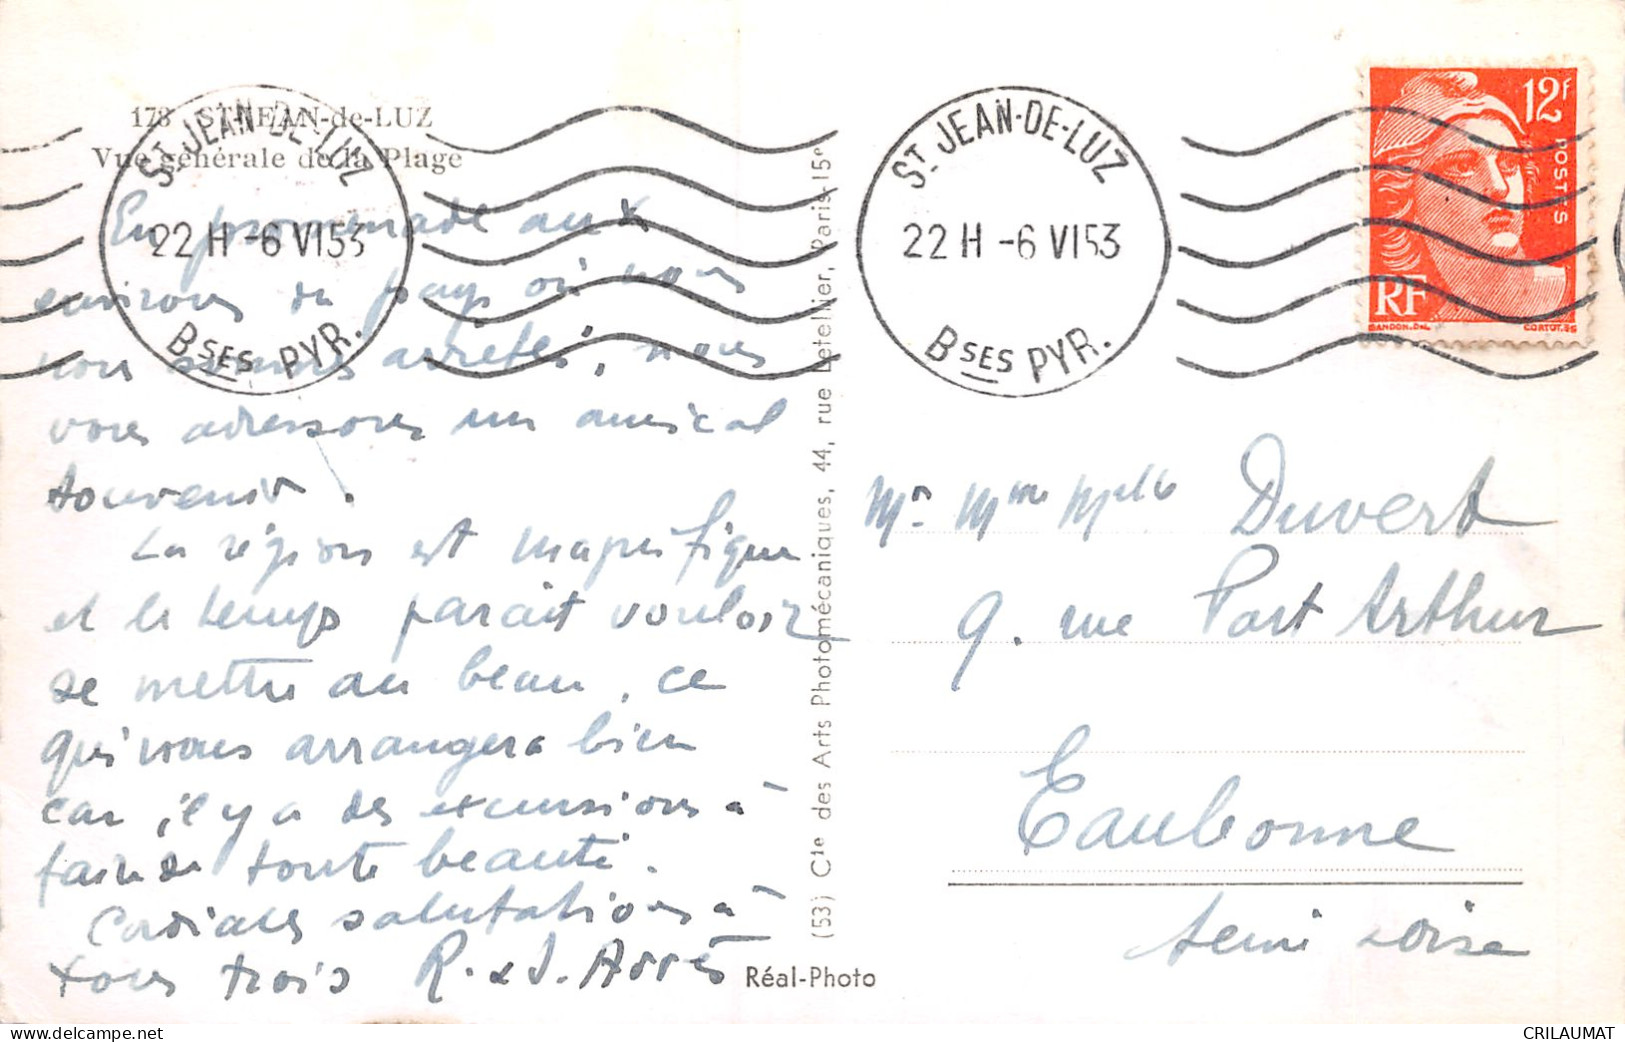 178 ST-JEAN-de-LUZ
Vue générale de la Plage
En promenade aux
environs du pays où nous
nous sommes arrêtés, nous
vous adressons un amical
souvenir.
La région est magnifique
et le temps parait vouloir
se mettre au beau, ce
qui vous arrangera bien
car, il y a des excursions à
faire de toute beauté.
Cordiales salutations à
tous trois R. & J.
(53) Cie des Arts Photomécaniques, 44, rue Letellier, Paris-15e
Réal-Photo
ST JEAN-DE-LUZ
22 H -6 VI 53
BSES PYR.
ST JEAN-DE-LUZ
22 H -6 VI 53
BSES PYR.
12F
POSTES
RF
GANDON.DEL
CORTOT.SC
Mr. Mme Melle Duvert
9. rue Port Arthur
Eaubonne
Seine Loise
delcampe.net
CRILAUMAT